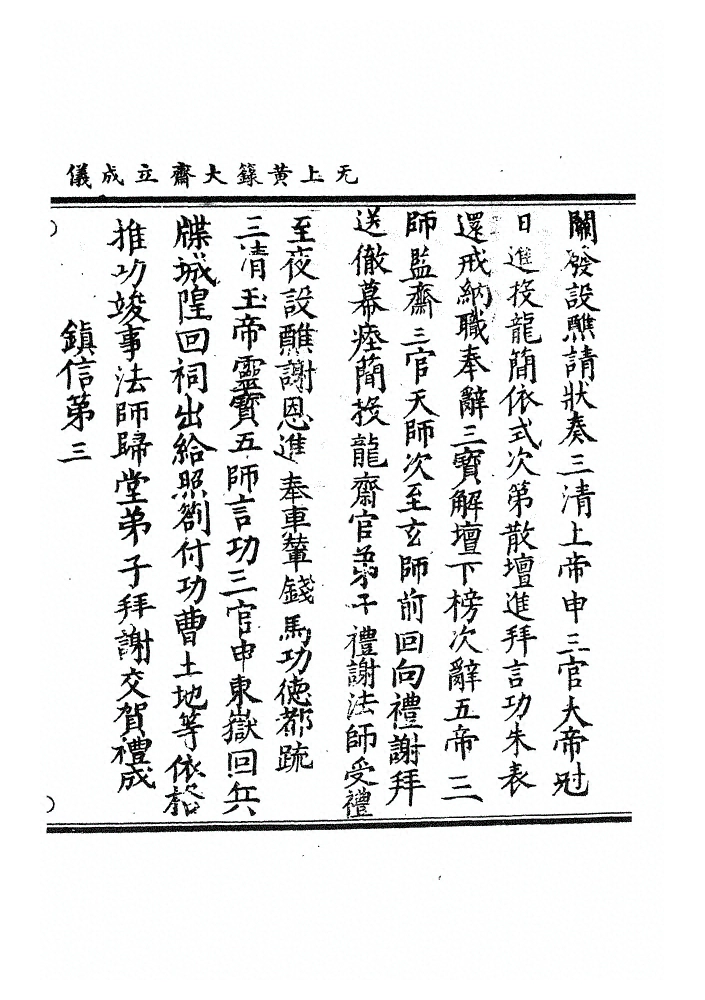 无上黄籙大齋立成儀
關發設醮請狀奏三清上帝申三官大帝冠
日進投龍簡依式次第散壇進拜言功朱表
還戒納職奉辭三寶解壇下榜次辭五帝三
師監齋三官天師次至玄師前回向禮謝拜
送徹幕瘞簡投龍齋官弟子禮謝法師受禮
至夜設醮謝恩進奉車輦錢馬功德都疏
三清玉帝靈寶五師言功三官申東嶽回兵
牒城隍回祠出給照劄付功曹土地等依格
推功竣事法師歸堂弟子拜謝交賀禮成
鎮信第三